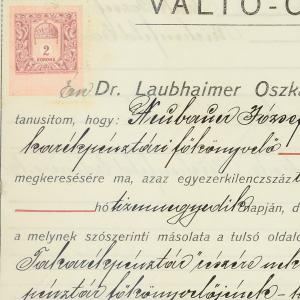 VÁLTÓ-Ó
2
KORONA
Én Dr. Laubhaimer Oszká
tanusitom, hogy: Neubauer József
takarékpénztári főkönyvelő
megkeresésére ma, azaz egyezerkilenczszáz
hó tizennegyedik napján, d
a melynek szószerinti másolata a tulsó oldalo
Takarékpénztár" részére
pénztár főkönyvelőjének